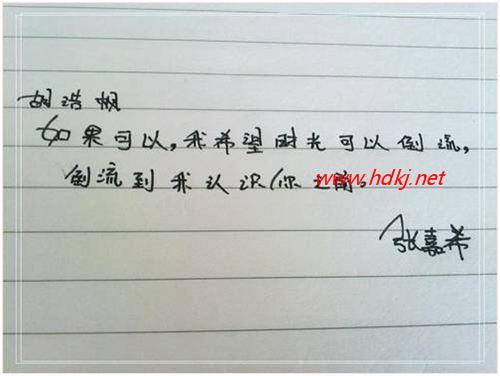 胡浩帆
如果可以,我希望时光可以倒流,
倒流到我认识你之前。
www.hdkj.net
张嘉希